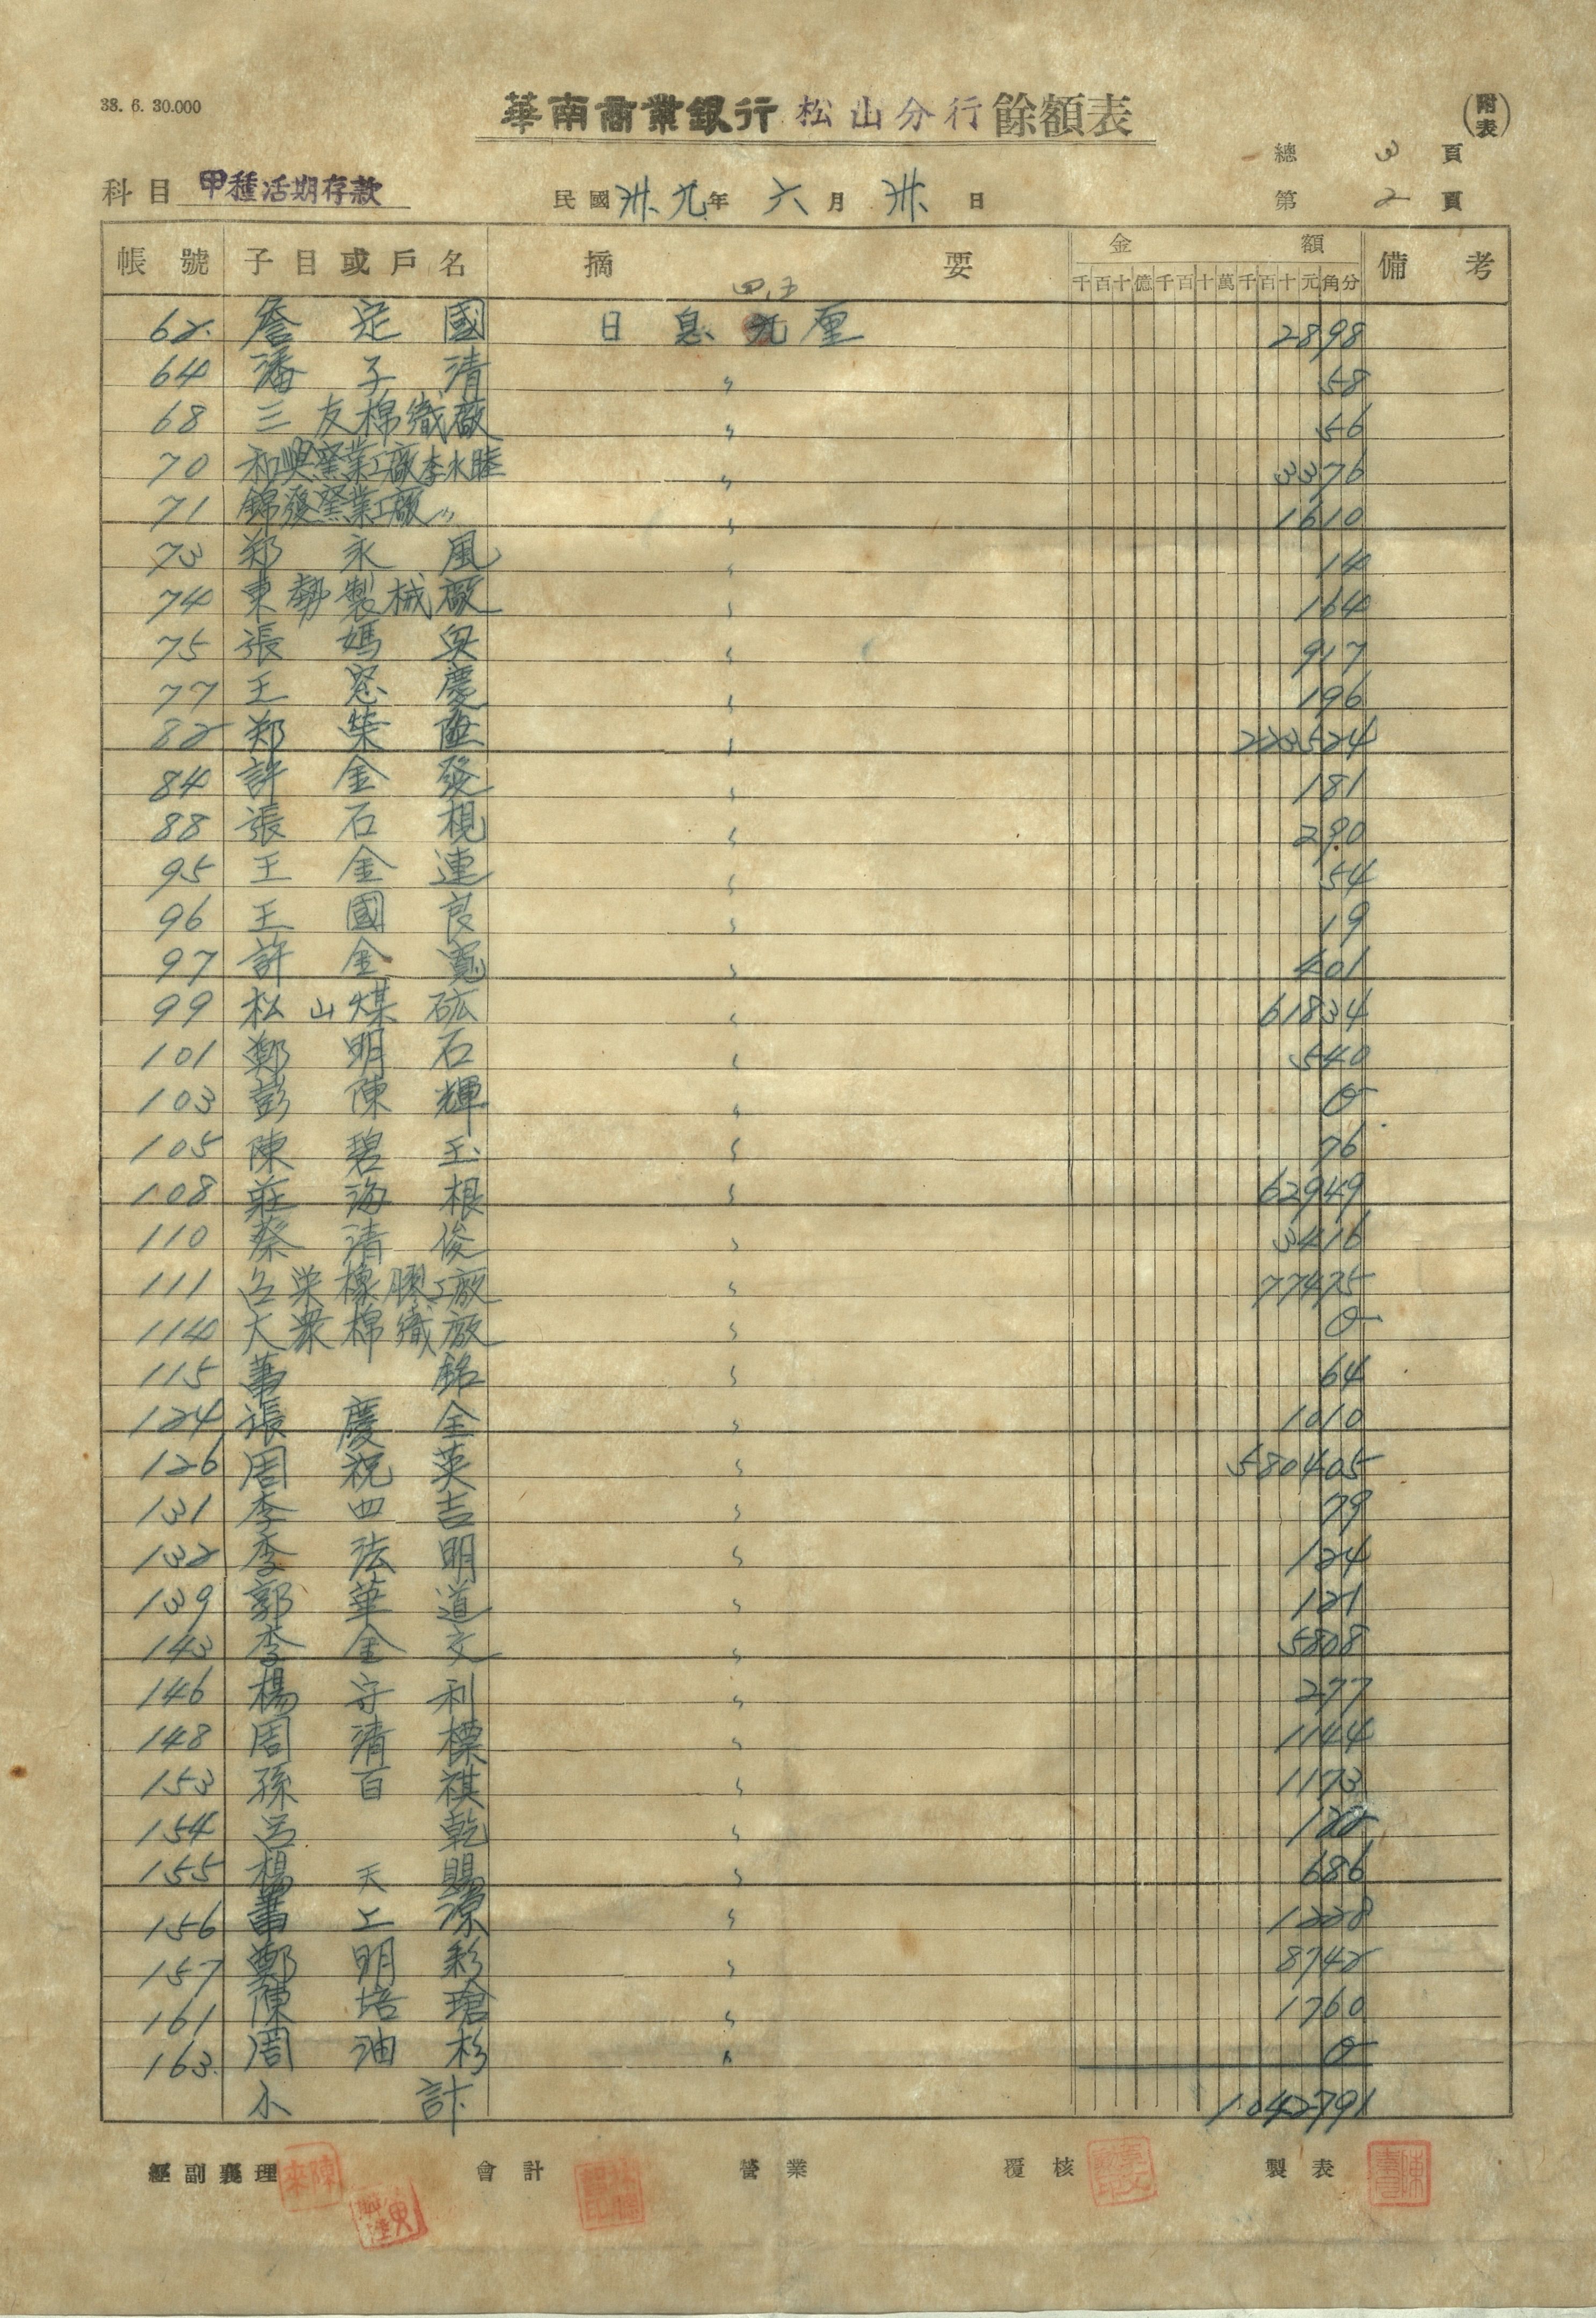 38. 6. 30.000
華南商業銀行 松山分行 餘額表
(附表)
總 3 頁
科目 甲種活期存款 民國 卅九年 六月 卅日 第 2 頁
帳號 子目或戶名 摘要 金額 備考
千百十億千百十萬千百十元角分
四.五
62. 詹定國 日息 厘 2898
64 潘子清 〃 58
68 三友棉織廠 〃 56
70 和興窯業工廠李水睦 〃 3376
71 錦發窯業工廠〃 〃 1610
73 郑永風 〃 14
74 東勢製械廠 〃 164
75 張媽 〃 917
77 王慶 〃 196
82 郑柴 〃 223524
84 許金發 〃 181
88 張石 〃 290
95 王金連 〃 54
96 王國良 〃 19
97 許金寬 〃 401
99 松山煤砿 〃 61834
101 鄭明石 〃 540
103 彭陳輝 〃 0
105 陳碧玉 〃 76
108 莊海根 〃 62949
110 蔡清俊 〃 3416
111 呂栄橡膠工廠 〃 77475
114 大衆棉織廠 〃 0
115 萬銘 〃 64
124 張慶全 〃 1010
126 周祝英 〃 580405
131 李四吉 〃 79
132 李法明 〃 124
139 郭華道 〃 121
143 李金文 〃 5808
146 楊守利 〃 277
148 周清標 〃 1144
153 孫百祺 〃 1173
154 呂乾 〃 122
155 楊天賜 〃 686
156 上 〃 1228
157 鄭明彩 〃 8742
161 陳培瑲 〃 1760
163. 周油杉 〃 0
小計 1042791
經副襄理 會計 營業 覆核 製表